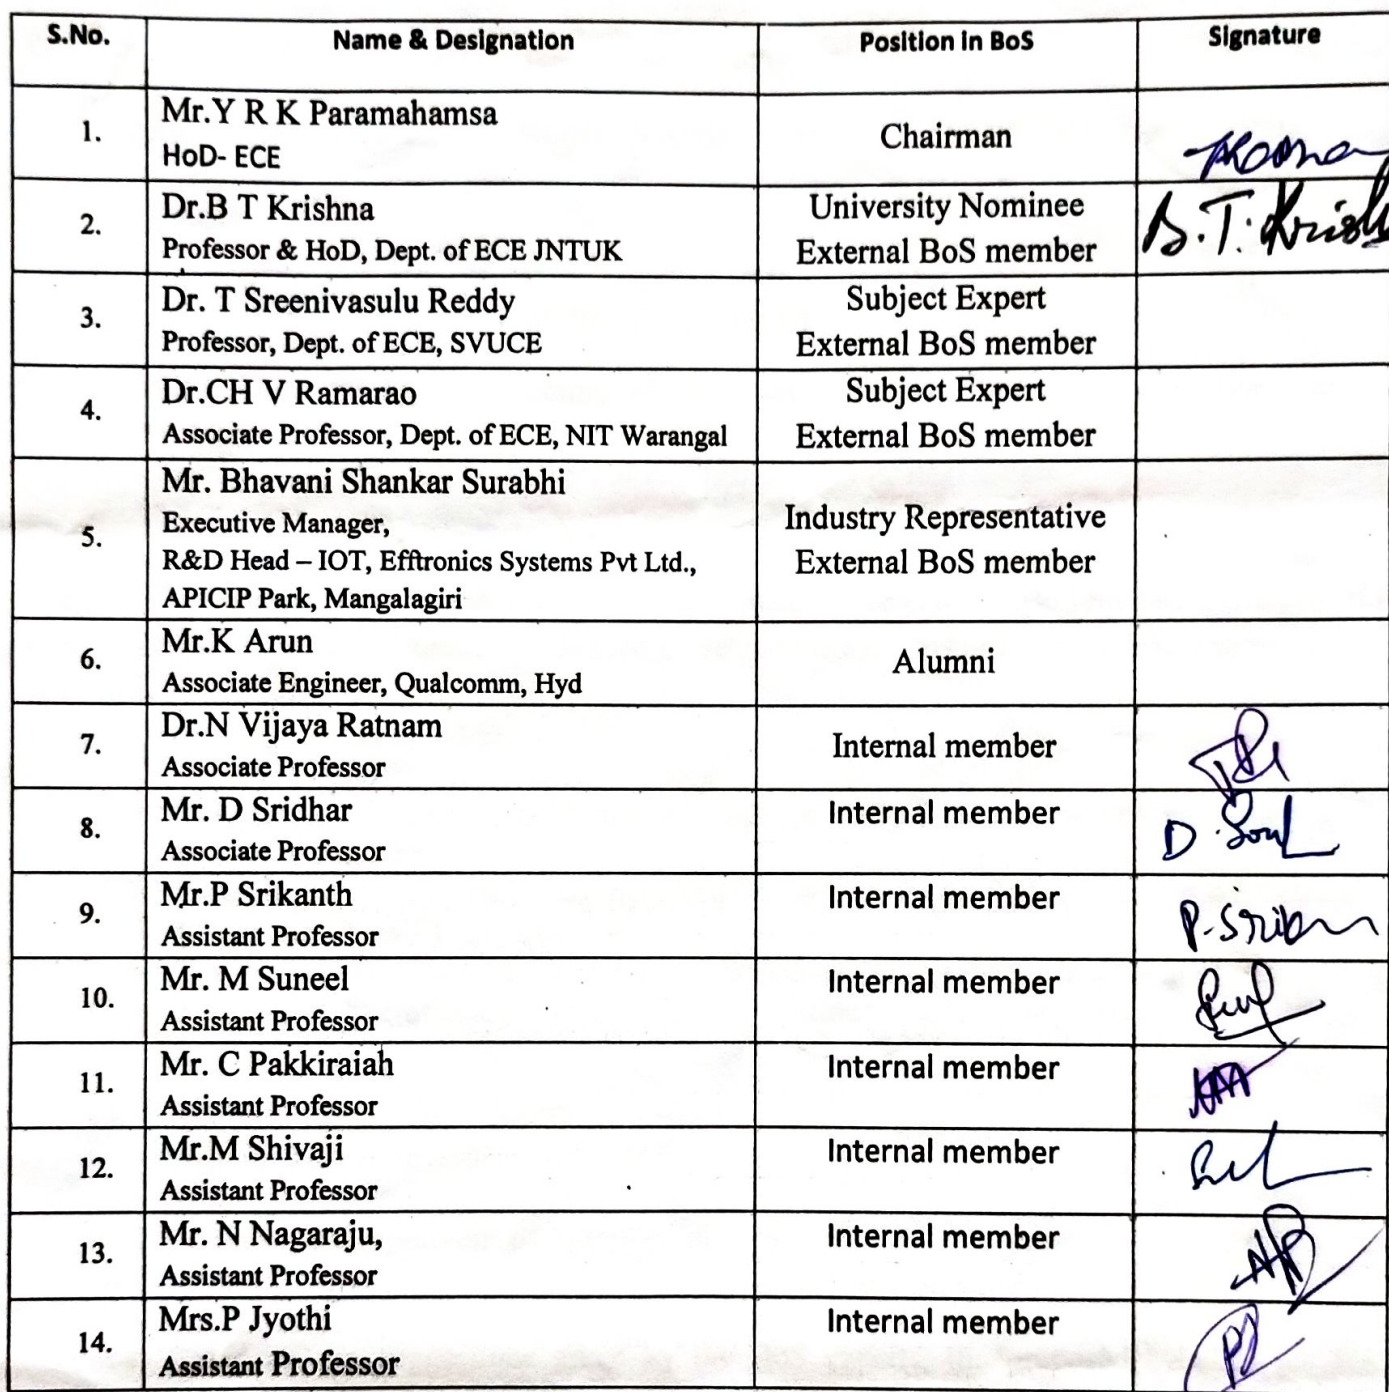 S.No. Name & Designation Position in BoS Signature
1. Mr.Y R K Paramahamsa
HoD- ECE
Chairman
2. Dr.B T Krishna
Professor & HoD, Dept. of ECE JNTUK
University Nominee
External BoS member
B.T. Krish
3. Dr. T Sreenivasulu Reddy
Professor, Dept. of ECE, SVUCE
Subject Expert
External BoS member
4. Dr.CH V Ramarao
Associate Professor, Dept. of ECE, NIT Warangal
Subject Expert
External BoS member
5. Mr. Bhavani Shankar Surabhi
Executive Manager,
R&D Head – IOT, Efftronics Systems Pvt Ltd.,
APICIP Park, Mangalagiri
Industry Representative
External BoS member
6. Mr.K Arun
Associate Engineer, Qualcomm, Hyd
Alumni
7. Dr.N Vijaya Ratnam
Associate Professor
Internal member
8. Mr. D Sridhar
Associate Professor
Internal member
D.
9. Mr.P Srikanth
Assistant Professor
Internal member
10. Mr. M Suneel
Assistant Professor
Internal member
11. Mr. C Pakkiraiah
Assistant Professor
Internal member
12. Mr.M Shivaji
Assistant Professor
Internal member
13. Mr. N Nagaraju,
Assistant Professor
Internal member
14. Mrs.P Jyothi
Assistant Professor
Internal member